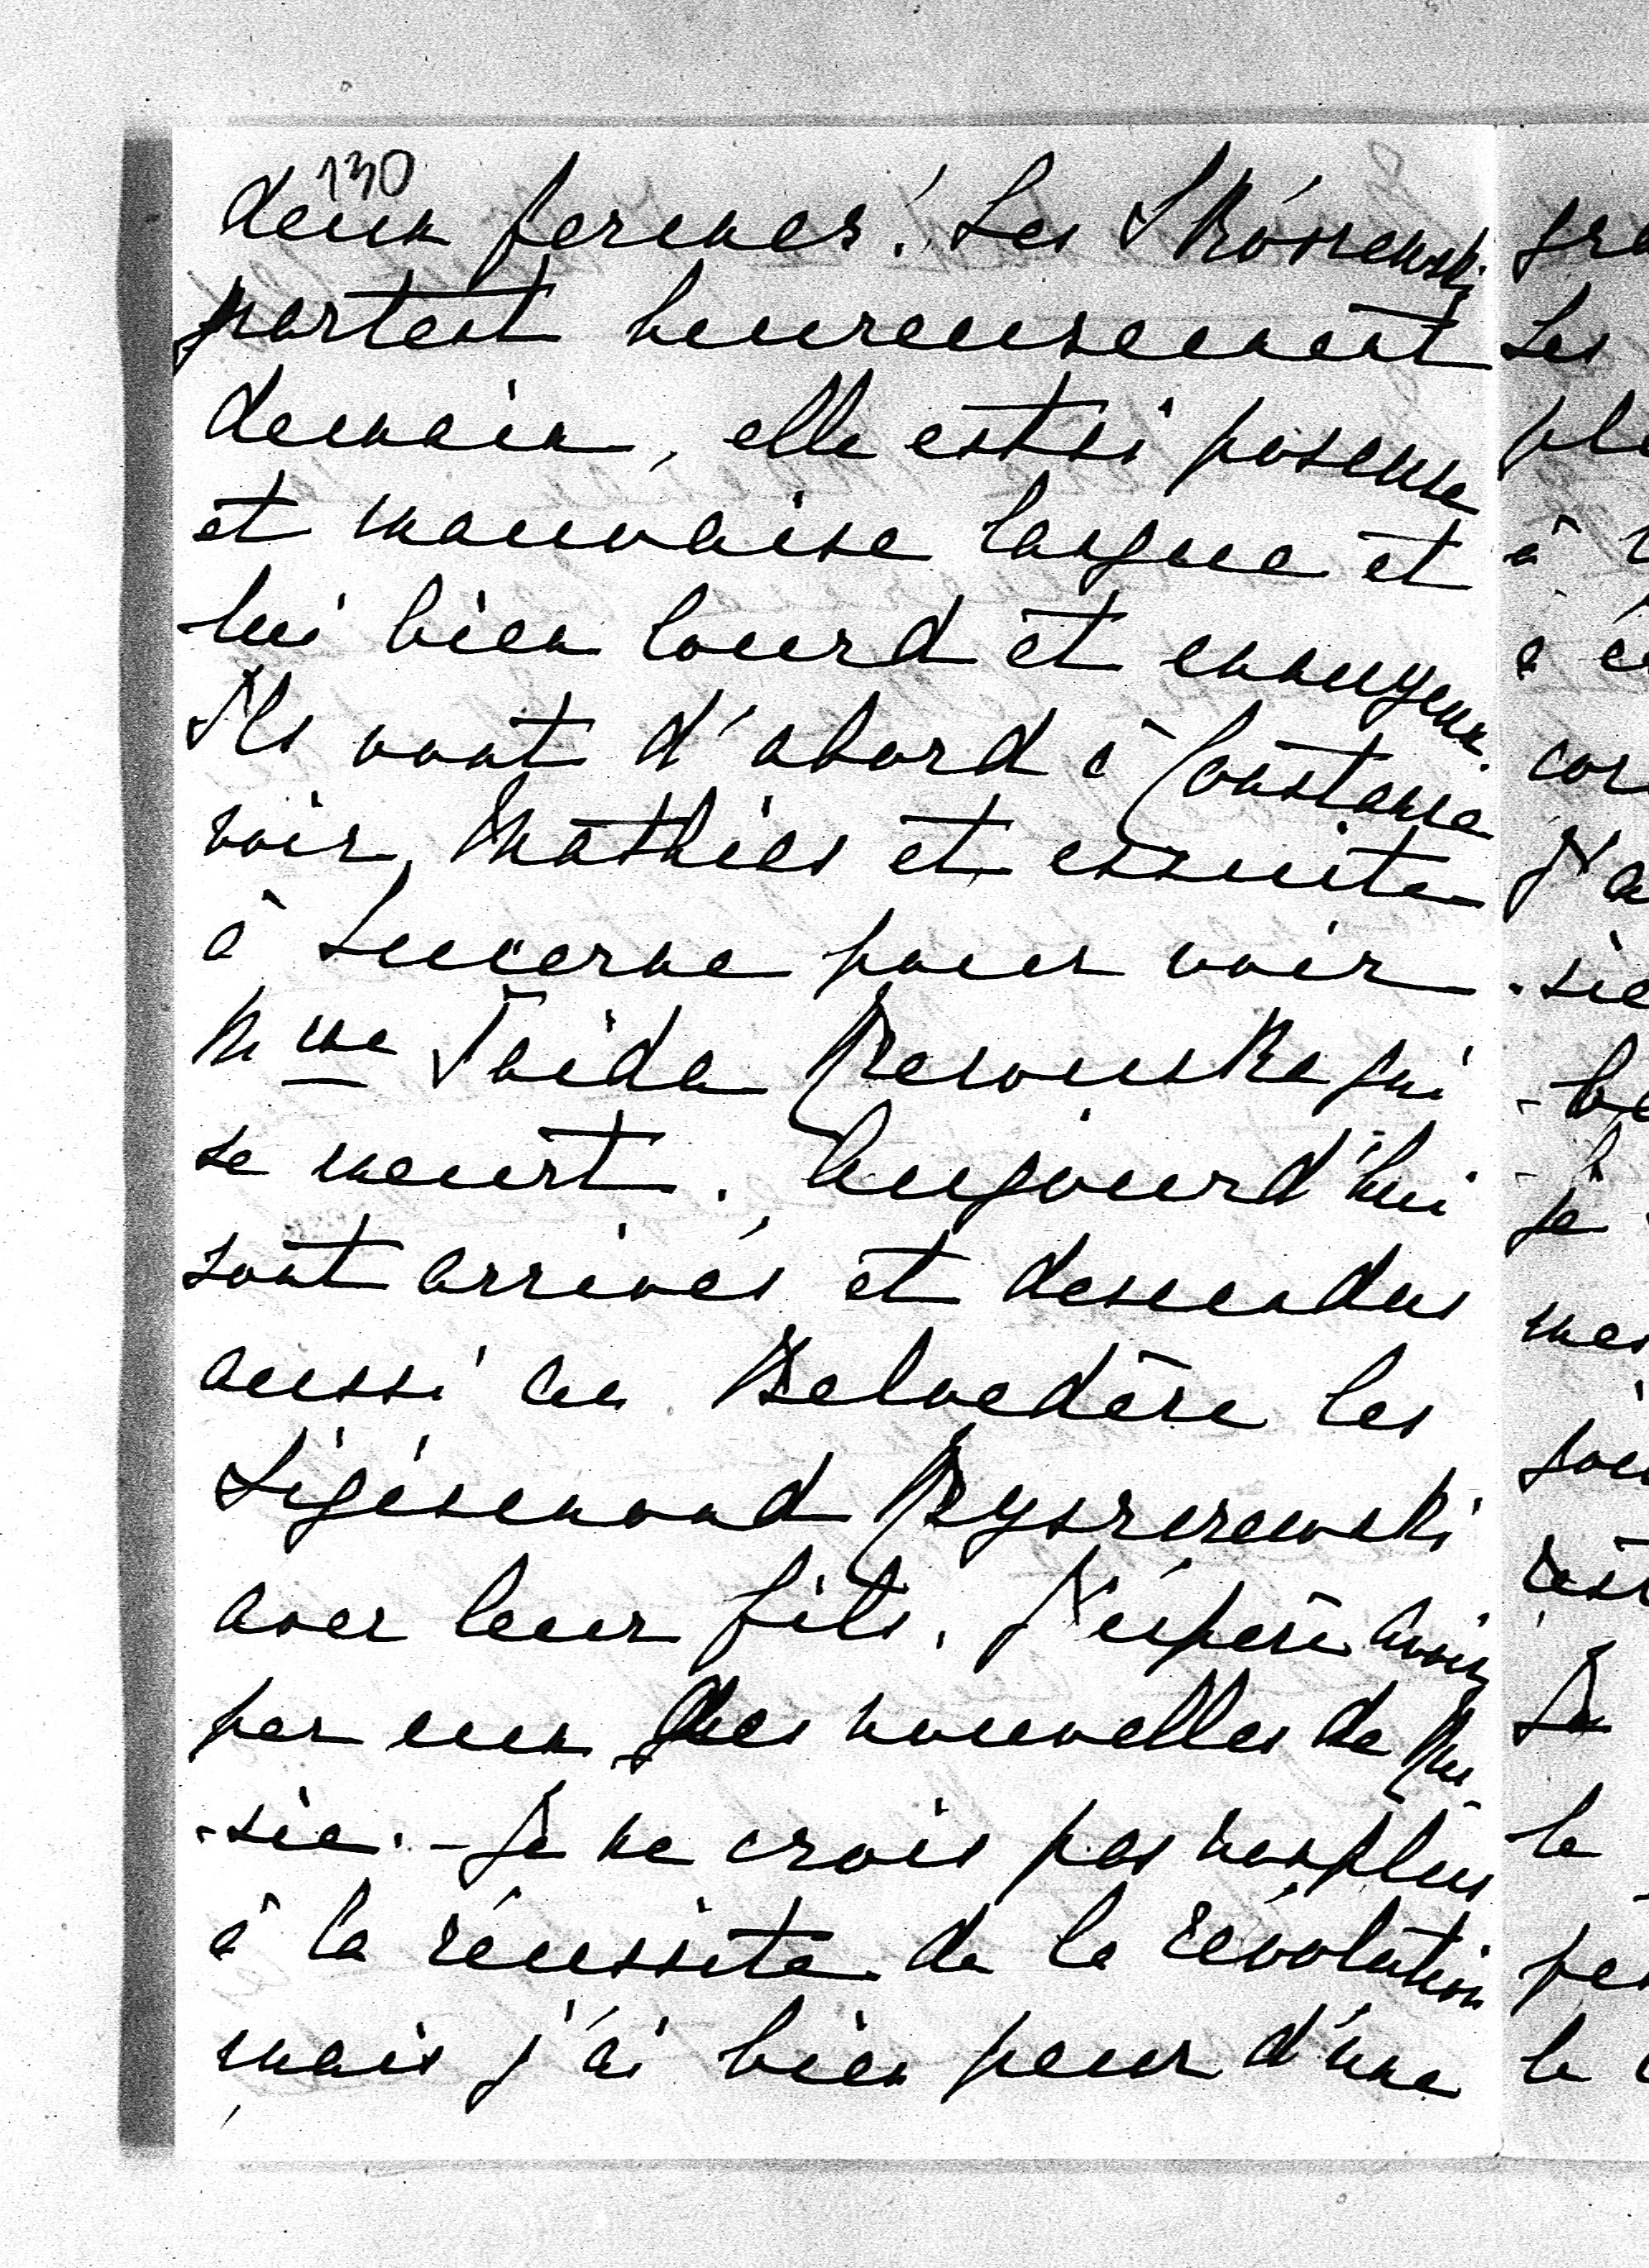 130
deux fermes! Les Skórzewski
partent heureusement
demain, elle est si poseuse
et mauvaise langue et
lui bien lourd et ennuyeux.
Ils vont d'abord à Constance
voir Mathies et ensuite
à Lucerne pour voir
Mme Taida Rzewuska qui
se meurt. Aujourd'hui
sont arrivés et descendus
aussi au Belvedère les
Sigismond Ryszczewski
avec leur fils. J'espère avoir
par eux des nouvelles de Rus-
-sie. - Je ne crois pas non plus
à la réussite de la révolution
mais j'ai bien peur d'une